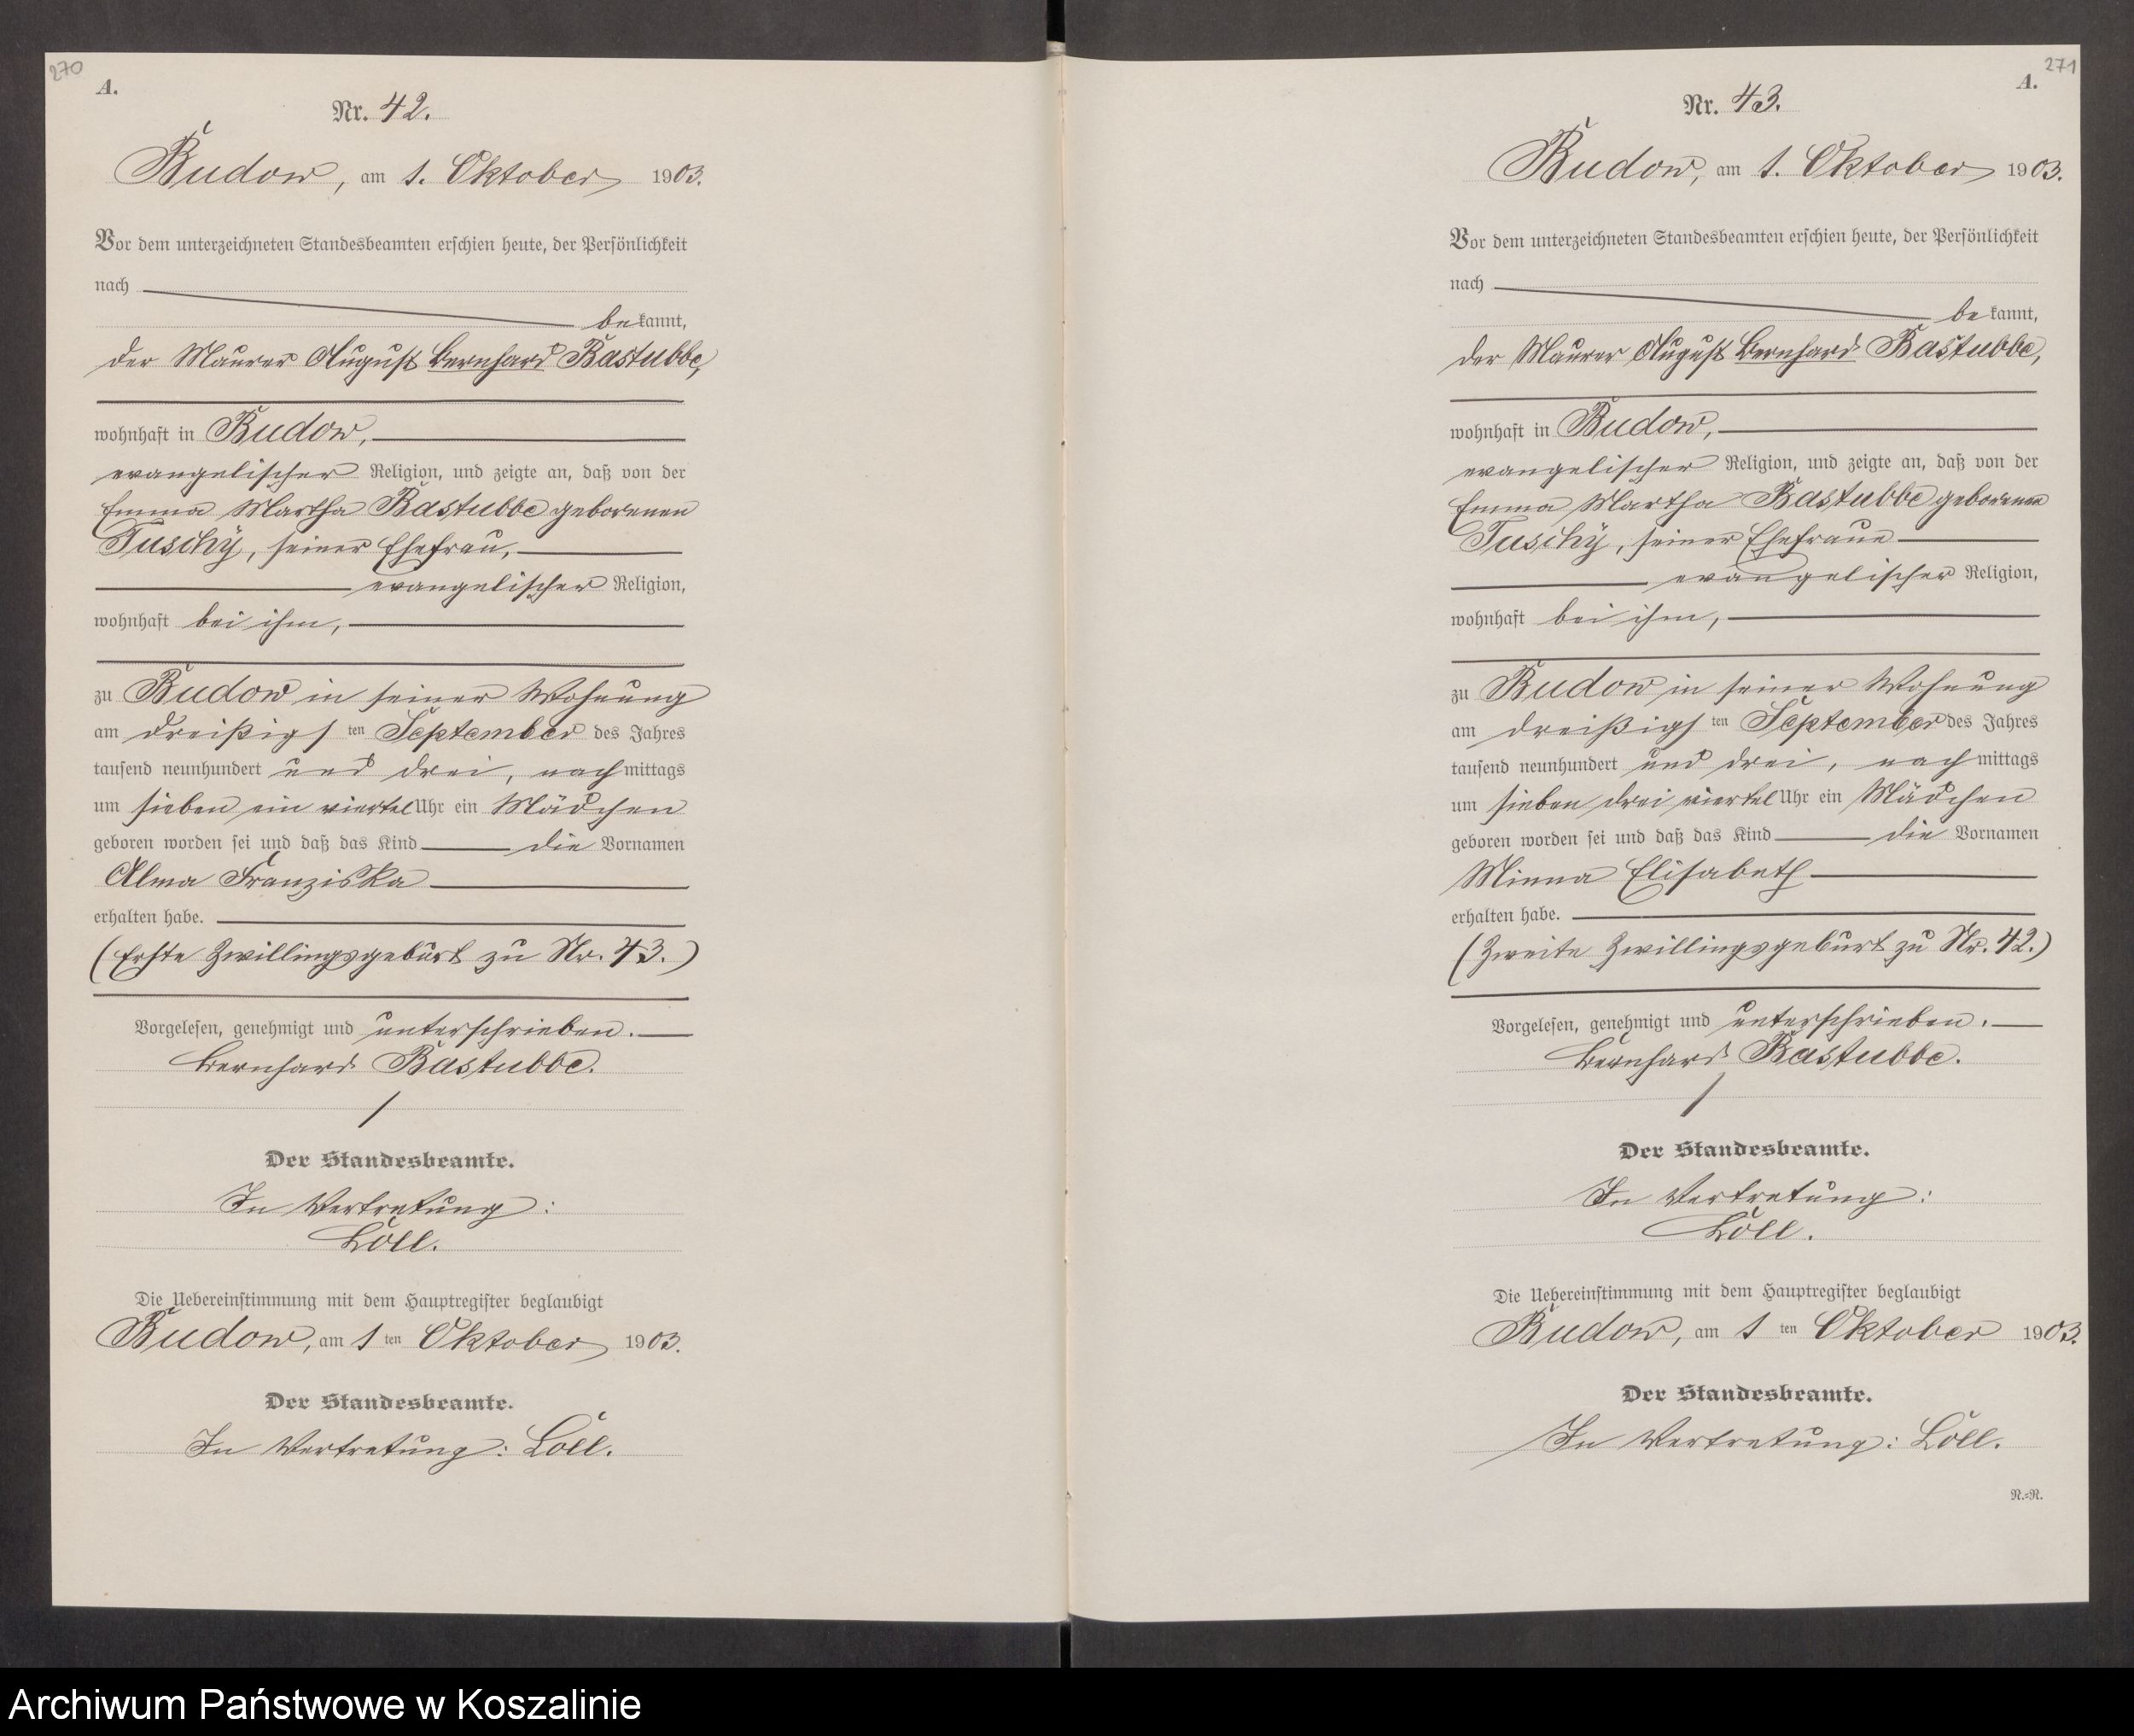 270
A.
Nr. 42.
Budow, am 1. Oktober 1903.
Vor dem unterzeichneten Standesbeamten erschien heute, der Persönlichkeit
nach
bekannt,
der Maurer August Bernhard Bastubbe,
wohnhaft in Budow,
evangelischer Religion, und zeigte an, daß von der
Emma Martha Bastubbe geborenen
Tuschÿ, seiner Ehefrau,
evangelischer Religion,
wohnhaft bei ihm,
zu Budow in seiner Wohnung
am dreißigsten September des Jahres
tausend neunhundert und drei, nachmittags
um sieben ein viertel Uhr ein Mädchen
geboren worden sei und daß das Kind die Vornamen
Alma Franziska
erhalten habe.
(Erste Zwillingsgeburt zu Nr. 43.)
Vorgelesen, genehmigt und unterschrieben.
Bernhard Bastubbe.
Der Standesbeamte.
In Vertretung:
Löll.
Die Uebereinstimmung mit dem Hauptregister beglaubigt
Budow, am 1ten Oktober 1903.
Der Standesbeamte.
In Vertretung: Löll.
271
A.
Nr. 43.
Budow, am 1. Oktober 1903.
Vor dem unterzeichneten Standesbeamten erschien heute, der Persönlichkeit
nach
bekannt,
der Maurer August Bernhard Bastubbe,
wohnhaft in Budow,
evangelischer Religion, und zeigte an, daß von der
Emma Martha Bastubbe geborenen
Tuschÿ, seiner Ehefraue
evangelischer Religion,
wohnhaft bei ihm,
zu Budow in seiner Wohnung
am dreißigsten September des Jahres
tausend neunhundert und drei, nachmittags
um sieben drei viertel Uhr ein Mädchen
geboren worden sei und daß das Kind die Vornamen
Minna Elisabeth
erhalten habe.
(Zweite Zwillingsgeburt zu Nr. 42.)
Vorgelesen, genehmigt und unterschrieben.
Bernhard Bastubbe.
Der Standesbeamte.
In Vertretung:
Löll.
Die Uebereinstimmung mit dem Hauptregister beglaubigt
Budow, am 1ten Oktober 1903.
Der Standesbeamte.
In Vertretung: Löll.
R.=R.
Archiwum Państwowe w Koszalinie